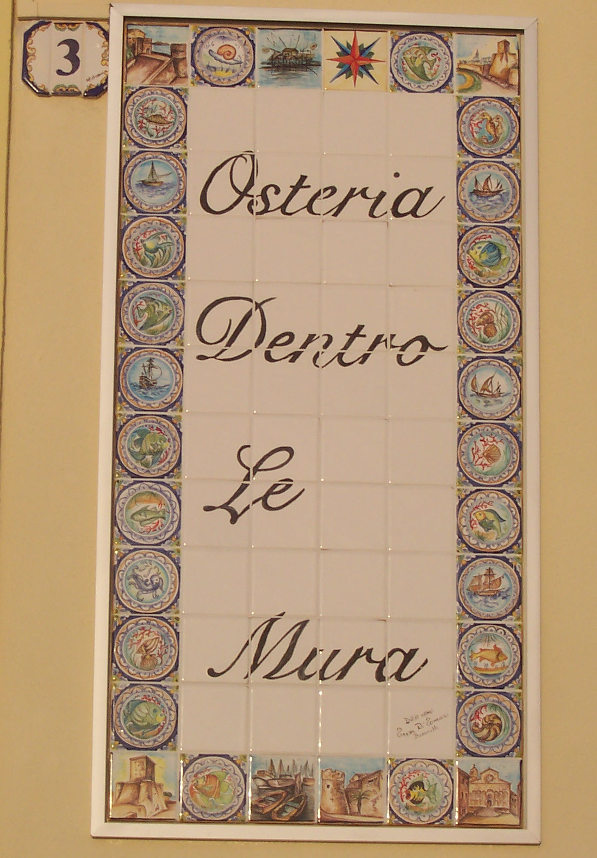 3
Osteria
Dentro
Le
Mura